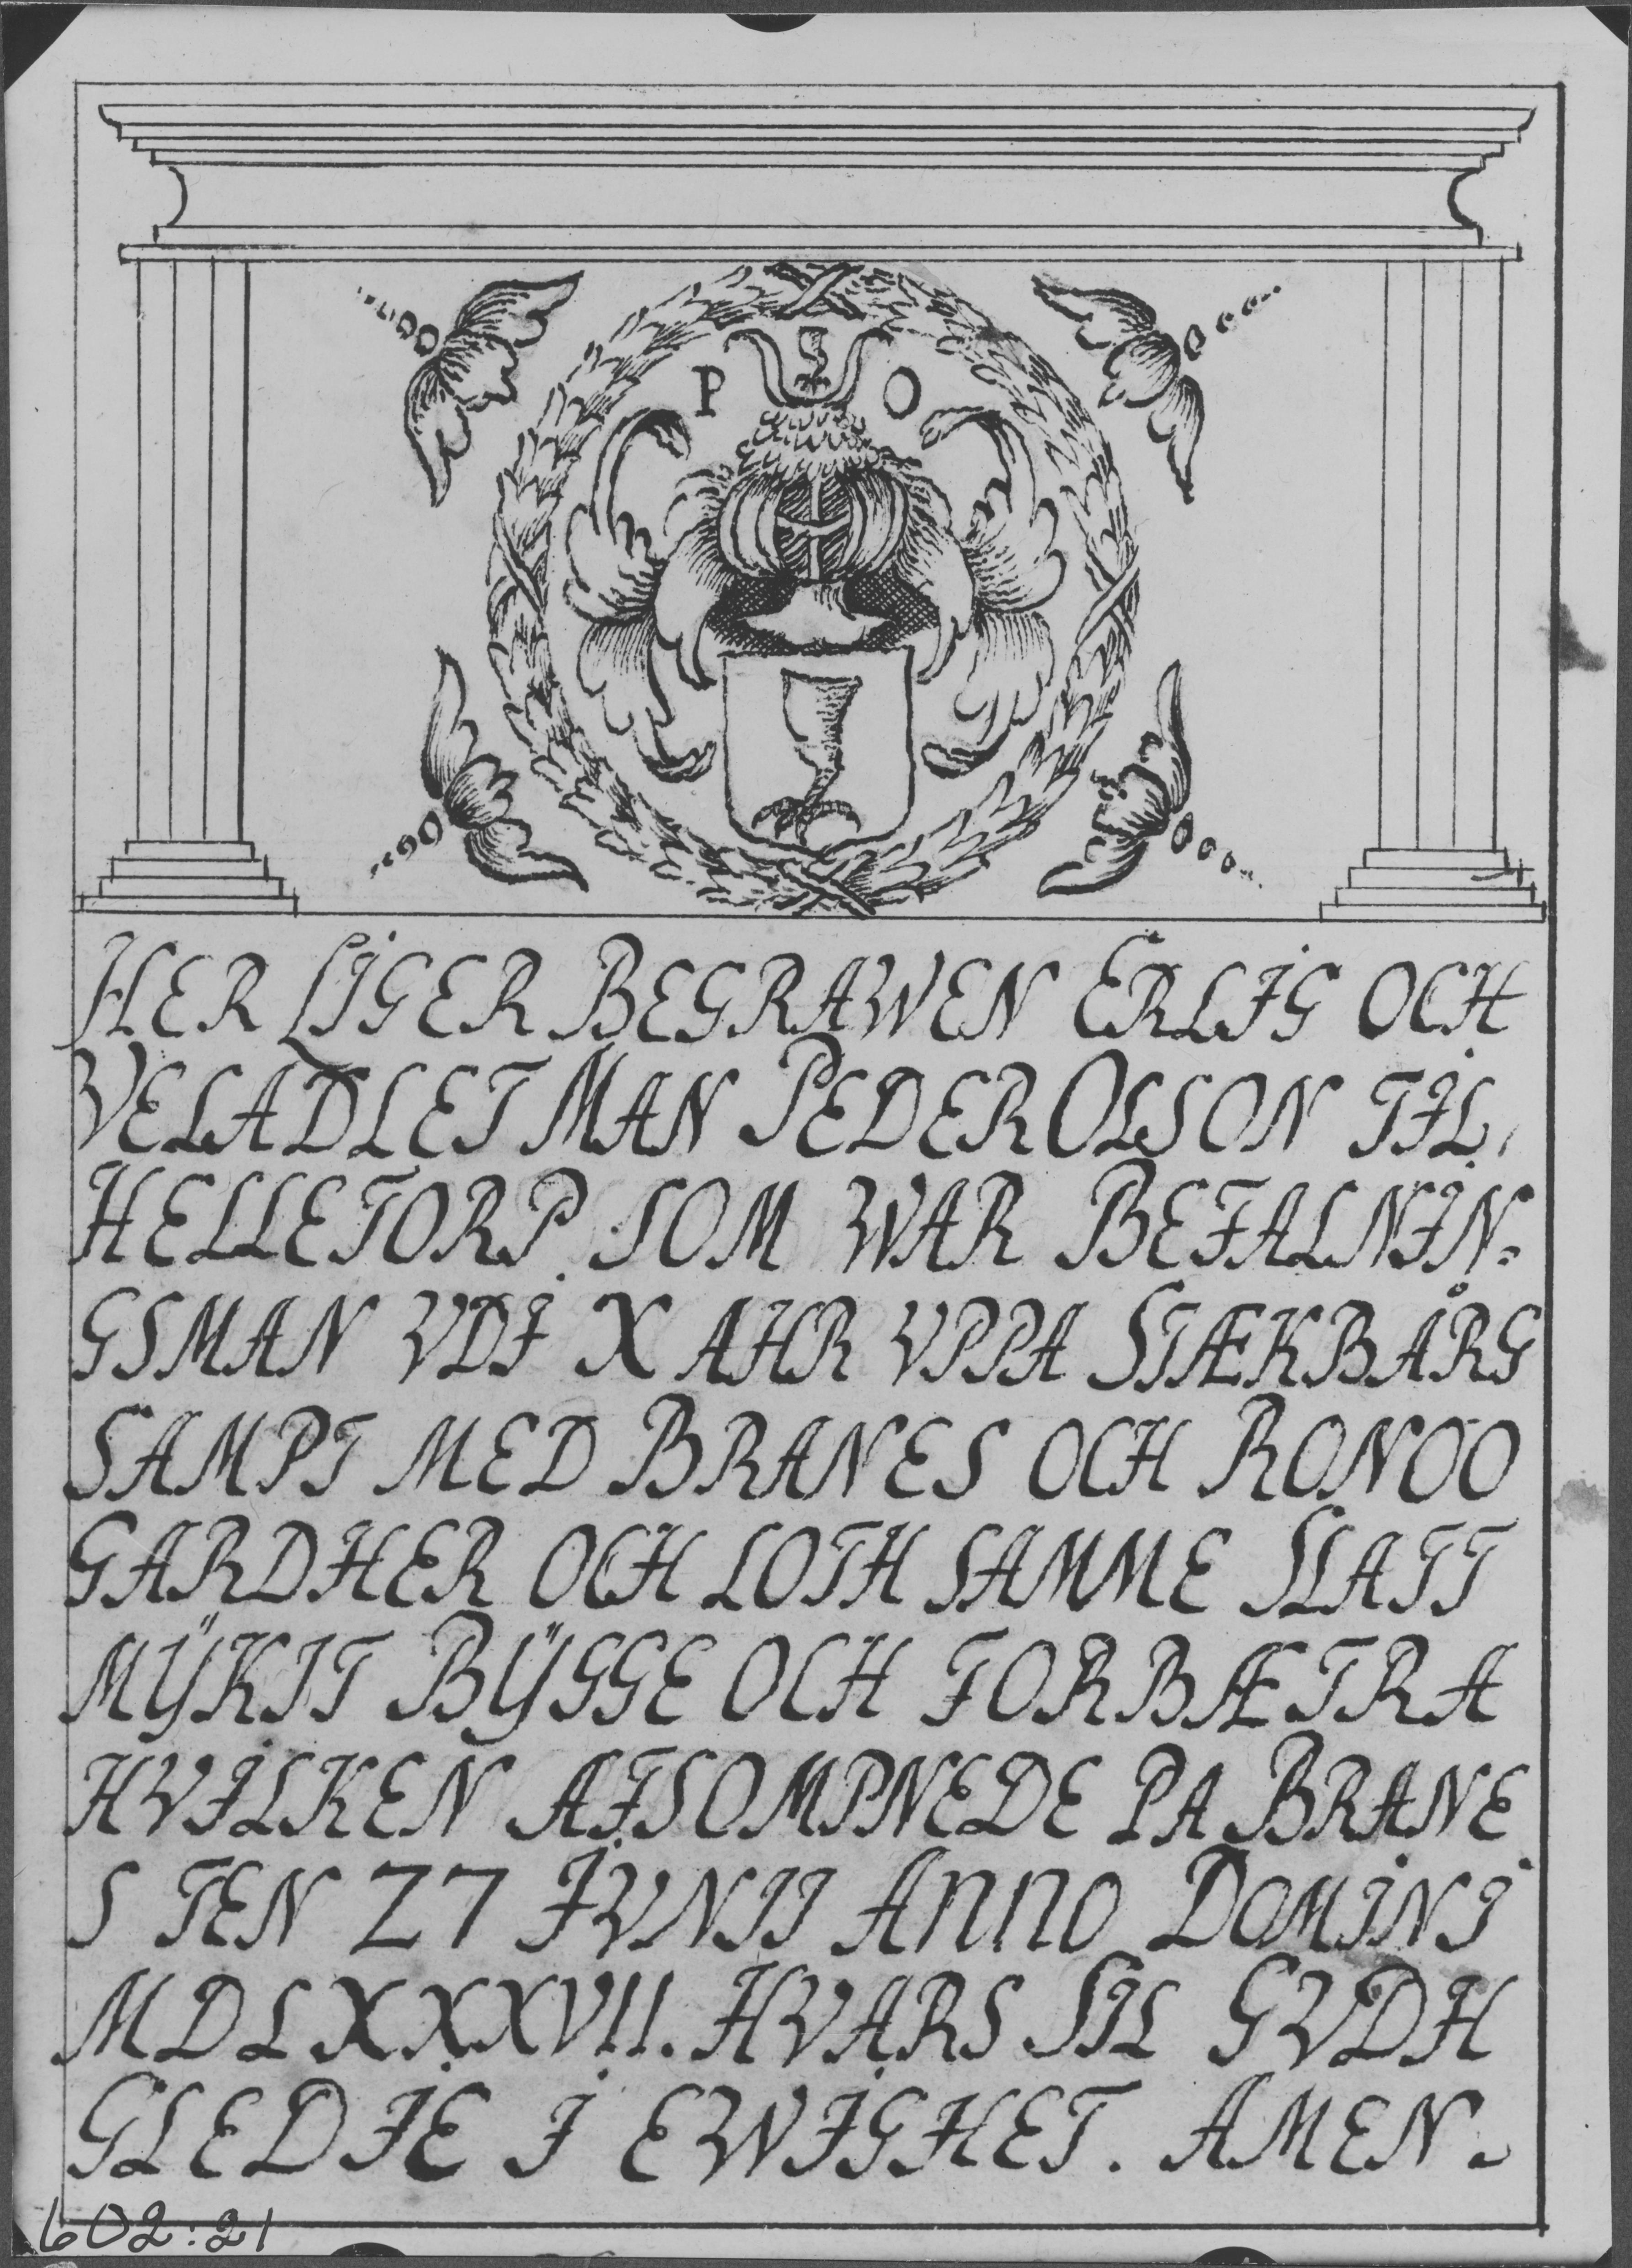 P O
HER LIGER BEGRAWEN ERLIG OCH
VELADLET MAN PEDER OLSSON TIL
HELLETORP SOM WAR BEFALNIN=
GSMAN VDI X AHR VPPA STÆKBÅRG
SAMPT MED BRANES OCH RONOO
GARDHER OCH LOTH SAMME SLATT
MŸKIT BŸGGE OCH FORBÆTRA
HVILKEN AFSOMPNEDE PA BRANE
S TEN 27 IVNII ANNO DOMINI
MDLXXXVII. HVARS SIL GVDH
GLEDIE I EWIGHET. AMEN.
602:21